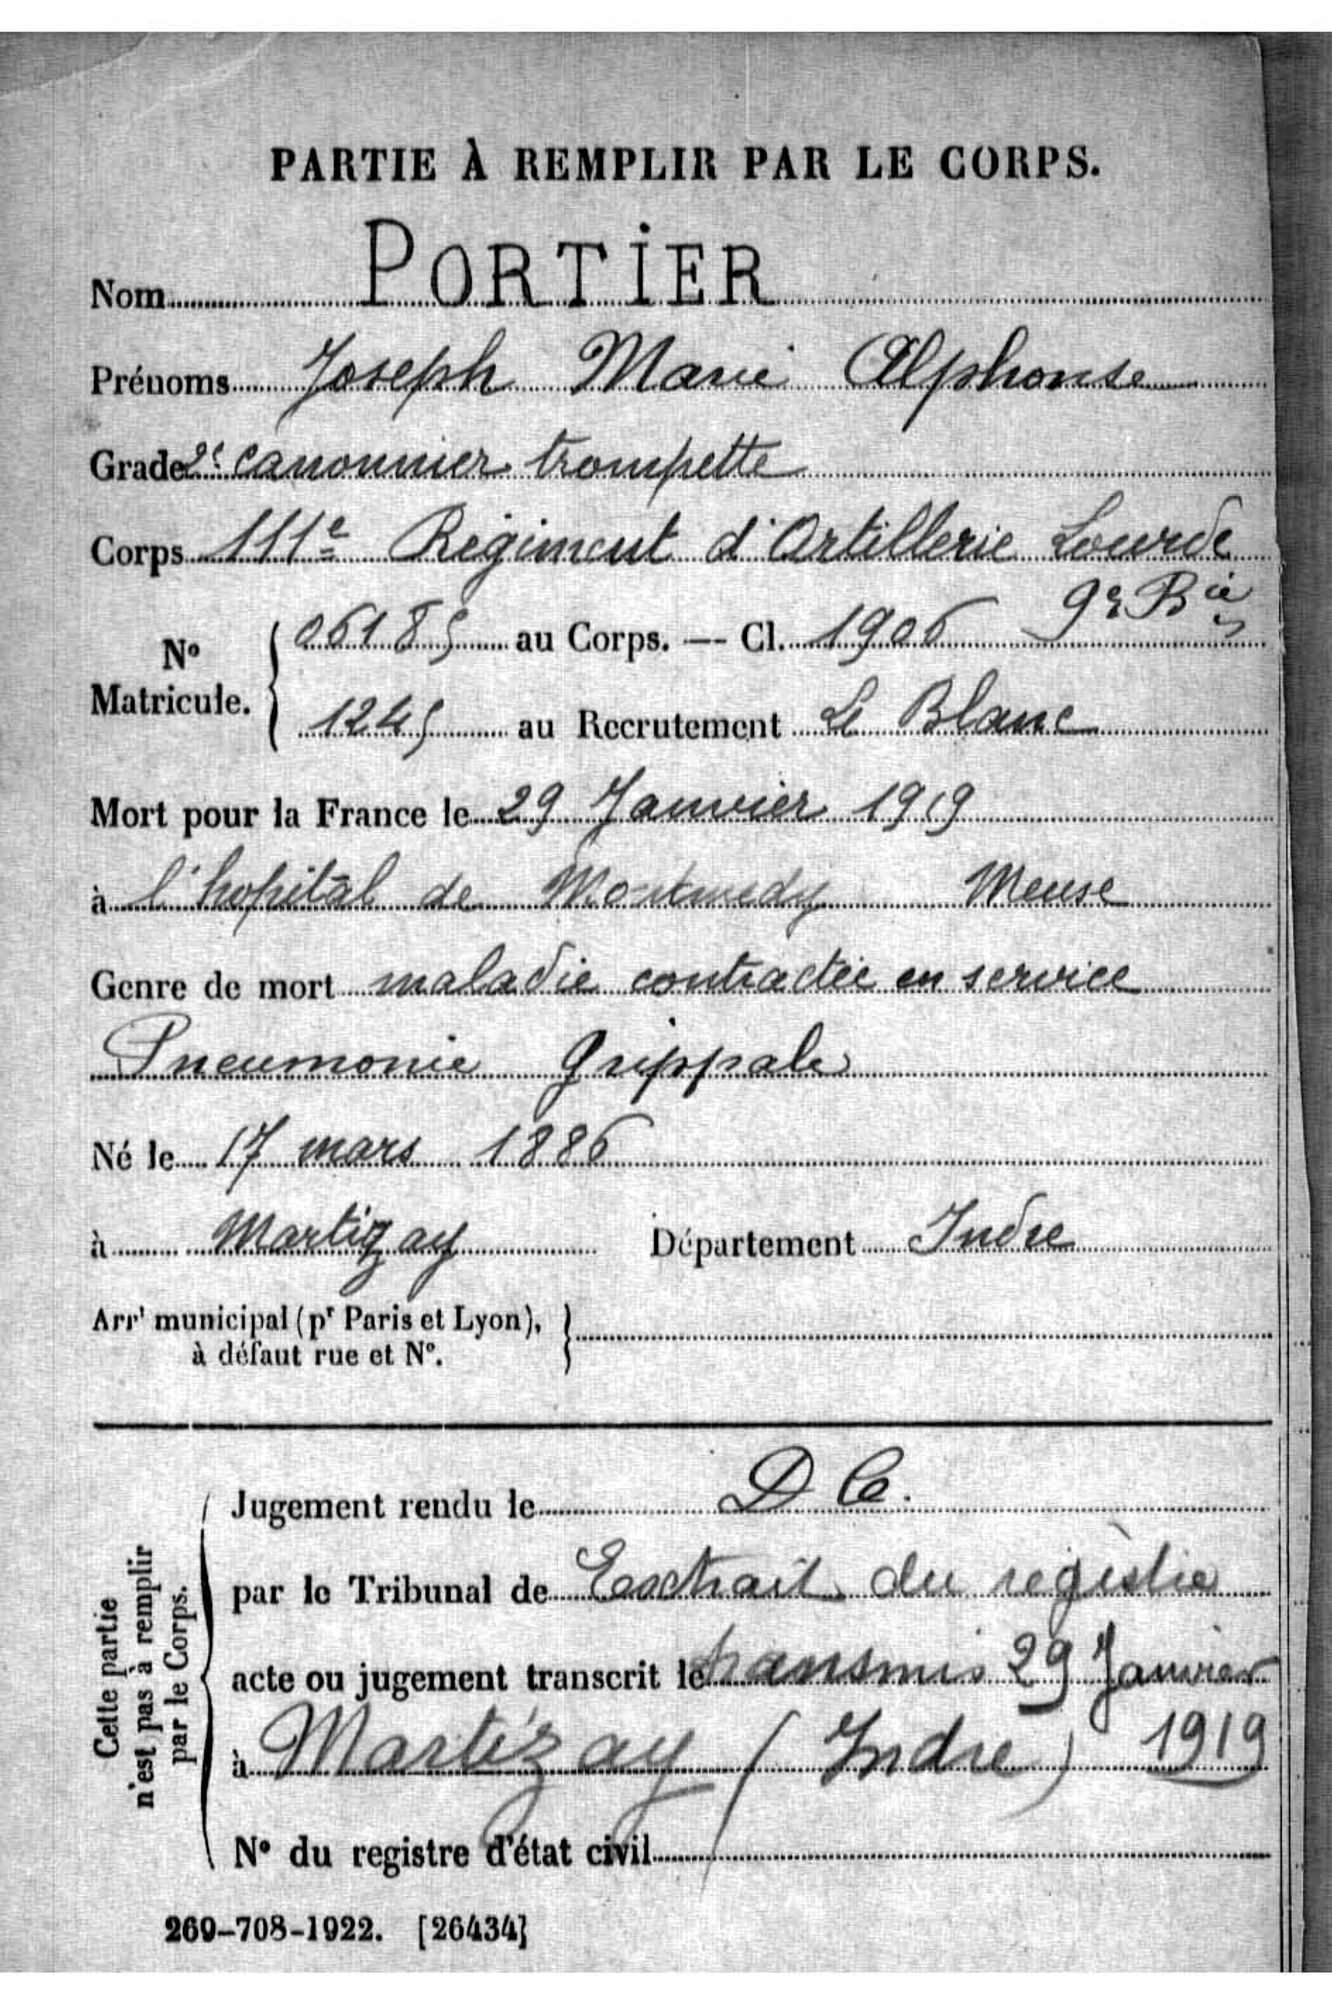 PARTIE À REMPLIR PAR LE CORPS.
Nom PORTIER
Prénoms Joseph Marie Alphonse
Grade 2e canonnier trompette
Corps 111e Régiment d'Artillerie Lourde
9e Bie
N° Matricule. { 06185 au Corps. — Cl. 1906
1245 au Recrutement Le Blanc
Mort pour la France le 29 Janvier 1919
à l'hopital de Montmedy Meuse
Genre de mort maladie contractée en service
Pneumonie Grippale
Né le 17 mars 1886
à Martizay Département Indre
Arrt municipal (pr Paris et Lyon), }
à défaut rue et N°.
Cette partie
n'est pas à remplir
par le Corps.
Jugement rendu le D C.
par le Tribunal de Extrait du registre
acte ou jugement transcrit le transmis 29 Janvier
à Martizay (Indre) 1919
N° du registre d'état civil
269-708-1922. [26434]